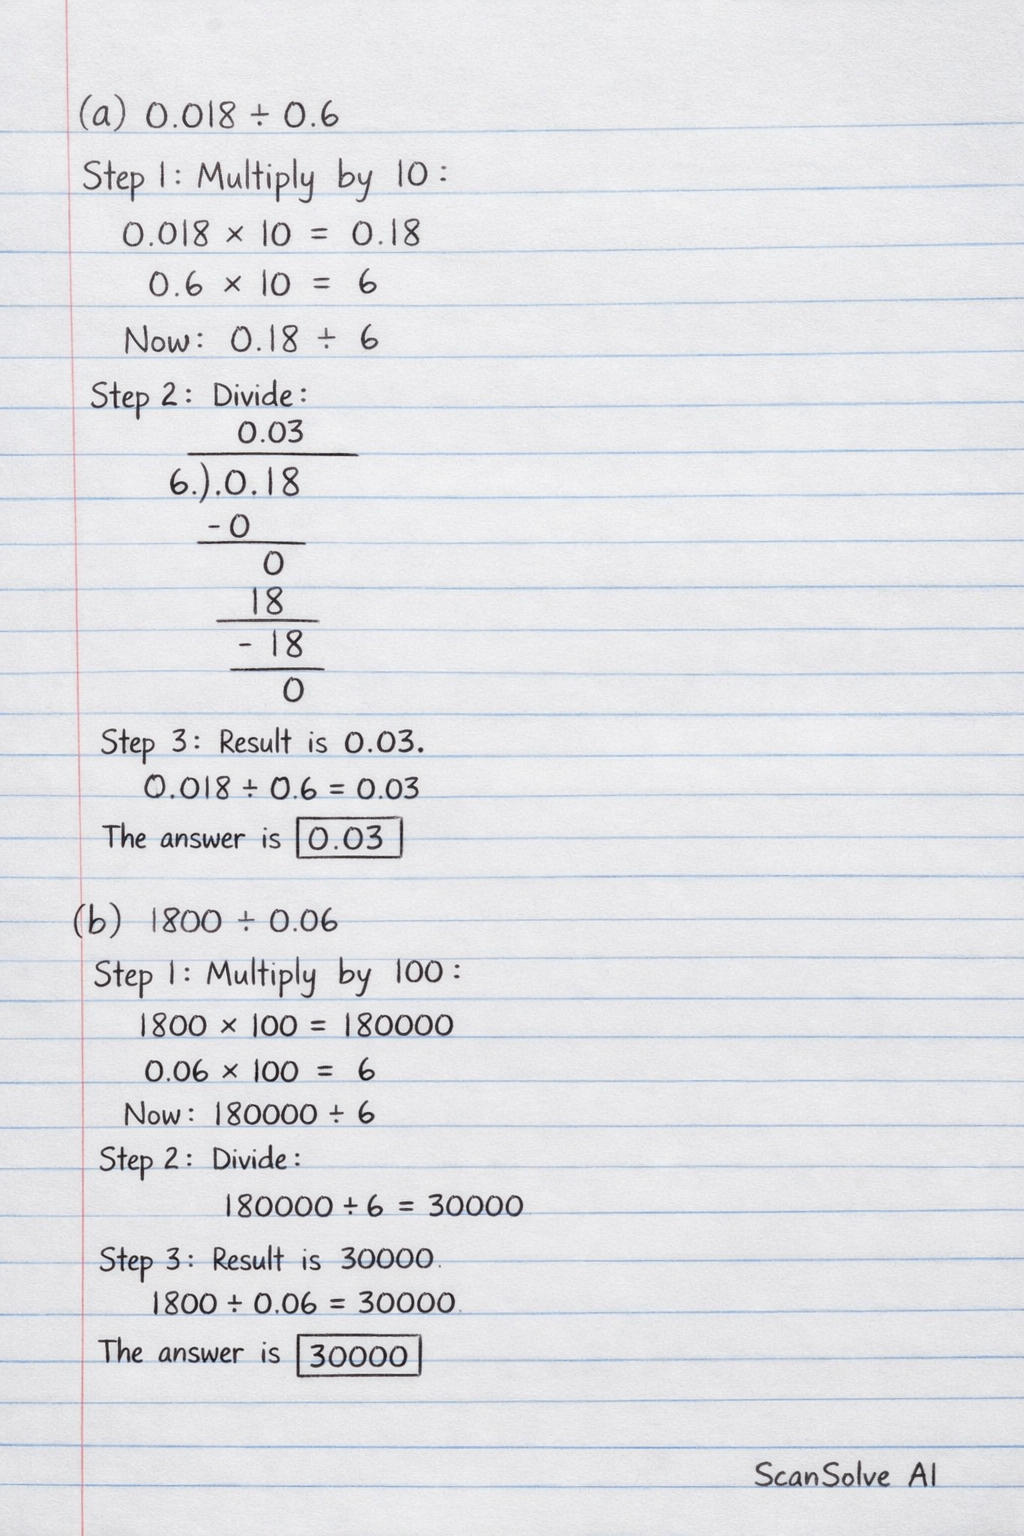 (a) 0.018 ÷ 0.6
Step 1: Multiply by 10:
0.018 × 10 = 0.18
0.6 × 10 = 6
Now: 0.18 ÷ 6
Step 2: Divide:
0.03
6.).0.18
-0
0
18
- 18
0
Step 3: Result is 0.03.
0.018 ÷ 0.6 = 0.03
The answer is 0.03
(b) 1800 ÷ 0.06
Step 1: Multiply by 100:
1800 × 100 = 180000
0.06 × 100 = 6
Now: 180000 ÷ 6
Step 2: Divide:
180000 ÷ 6 = 30000
Step 3: Result is 30000.
1800 ÷ 0.06 = 30000.
The answer is 30000
ScanSolve AI